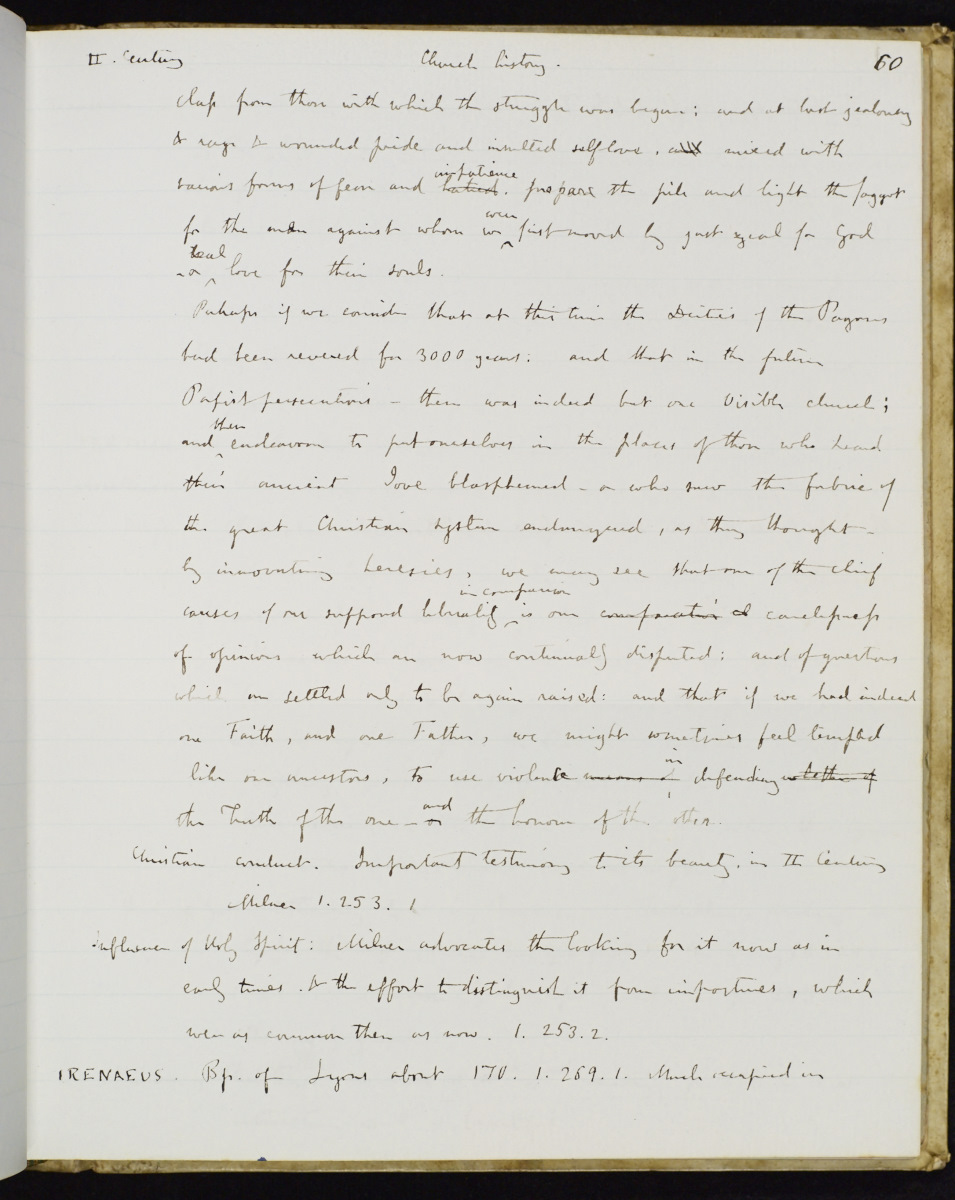 II. Century Church history. 60
clasp from those with which the struggle was begun; and at last jealousy
& rage & wounded pride and insulted selflove, and mixed with
various forms of fear and hatred. impatience prepare the pile and light the faggot
for the men against whom we were first moved by just zeal for God
- or real love for their souls.
Perhaps if we consider that at this time the Deities of the Pagans
had been revered for 3000 years: and that in the future
Papist persecutions - there was indeed but one Visible church;
and then endeavour to put ourselves in the places of those who heard
their ancient Jove blasphemed - or who saw the fabric of
the great Christian system endangered, as they thought -
by innovating heresies, we may see that one of the chief
causes of our supposed liberality in comparison is our carelessness
of opinions which are now continually disputed: and of questions
which are settled only to be again raised: and that if we had indeed
one Faith, and one Father, we might sometimes feel tempted
like our ancestors, to use violence means in defending whether of
the Truth of the one - or and the honour of the other.
Christian conduct. Important testimony to its beauty, in II Century
Milner 1. 253. 1
Influence of Holy Spirit: Milner advocates the looking for it now as in
early times. & the effort to distinguish it from impostures, which
were as common then as now. 1. 253. 2.
IRENAEUS. Bp. of Lyons about 170. 1. 269. 1. Much occupied in